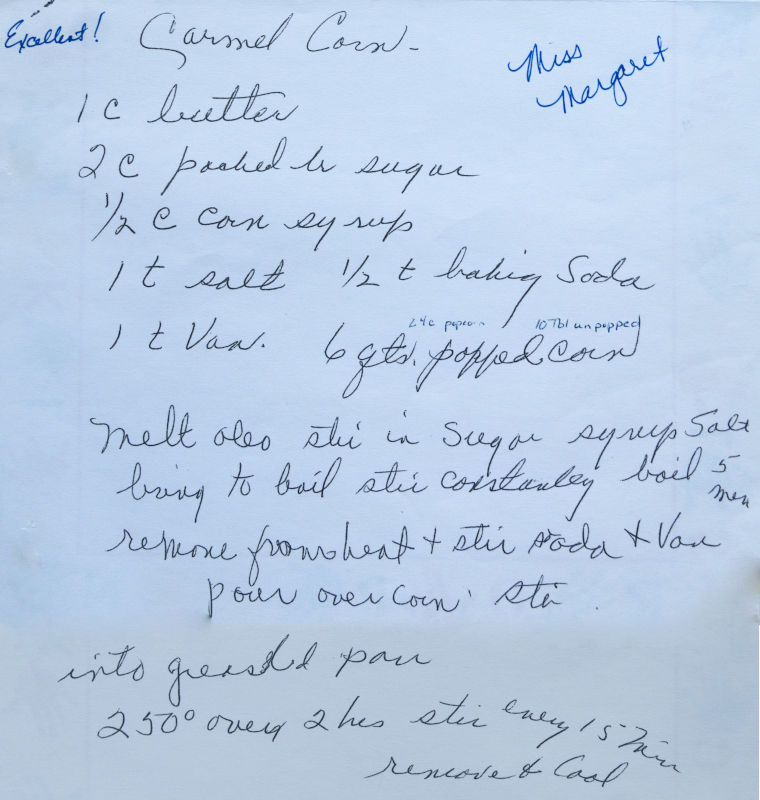 Excellent! Carmel Corn.
Miss
Margaret
1 c butter
2 c packed br sugar
1/2 c corn syrup
1 t salt 1/2 t baking Soda
24c popcorn 10 Tbl unpopped
1 t Van. 6 qts. popped corn
Melt oleo stir in Sugar syrup Salt
bring to boil stir constantley boil 5
min
remove from heat + stir soda + Van
pour over corn stir
into greased pan
250° oven 2 hrs stir every 15 min
remove & Cool